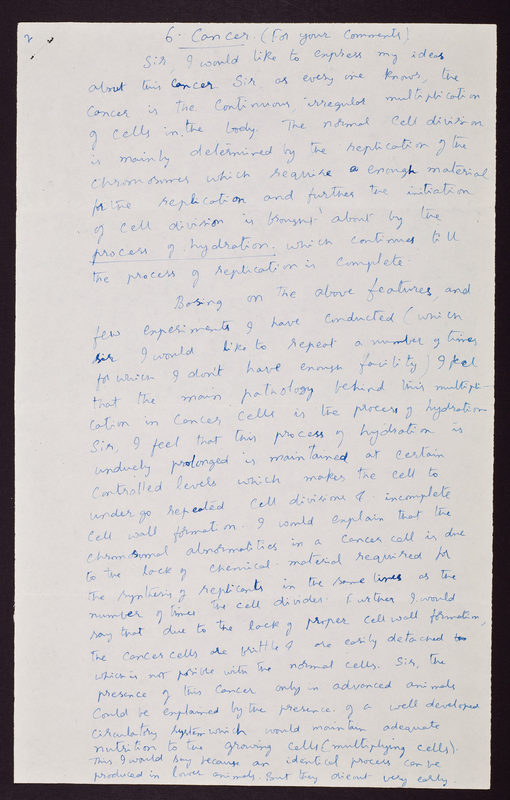 2
6. Cancer. (For your Comments)
Sir, I would like to express my ideas
about this Cancer. Sir, as every one knows, the
Cancer is the Continuous irregular multiplication
of cells in the body. The normal Cell division
is mainly determined by the replication of the
Chromosomes which require a enough material
for the replication and further the initiation
of cell division is brought about by the
process of hydration, which continues till
the process of replication is complete.
Basing on the above features, and
few experiments I have conducted (which
sir I would like to repeat a number of times
for which I don't have enough facility) I feel
that the main pathology behind this multipli-
cation in cancer cells is the process of hydration
Sir, I feel that this process of hydration is
unduely prolonged is maintained at certain
Controlled levels which makes the cell to
undergo repeated cell divisions & incomplete
Cell wall formation. I would explain that the
Chromosomal abnormalities in a cancer cell is due
to the lack of chemical material required for
the synthesis of replicants in the same lines as the
number of times the cell divides. Further I would
say that due to the lack of proper cell wall formation,
the cancer cells are brittle & are easily detached
which is not posible with the normal cells. Sir, the
presence of this cancer only in advanced animals
Could be explained by the presence of a well developed
Circulatory system which would maintain adequate
nutrition to the growing cells (multiplying cells).
This I would say because an identical process can be
produced in lower animals. But they dieout very early.